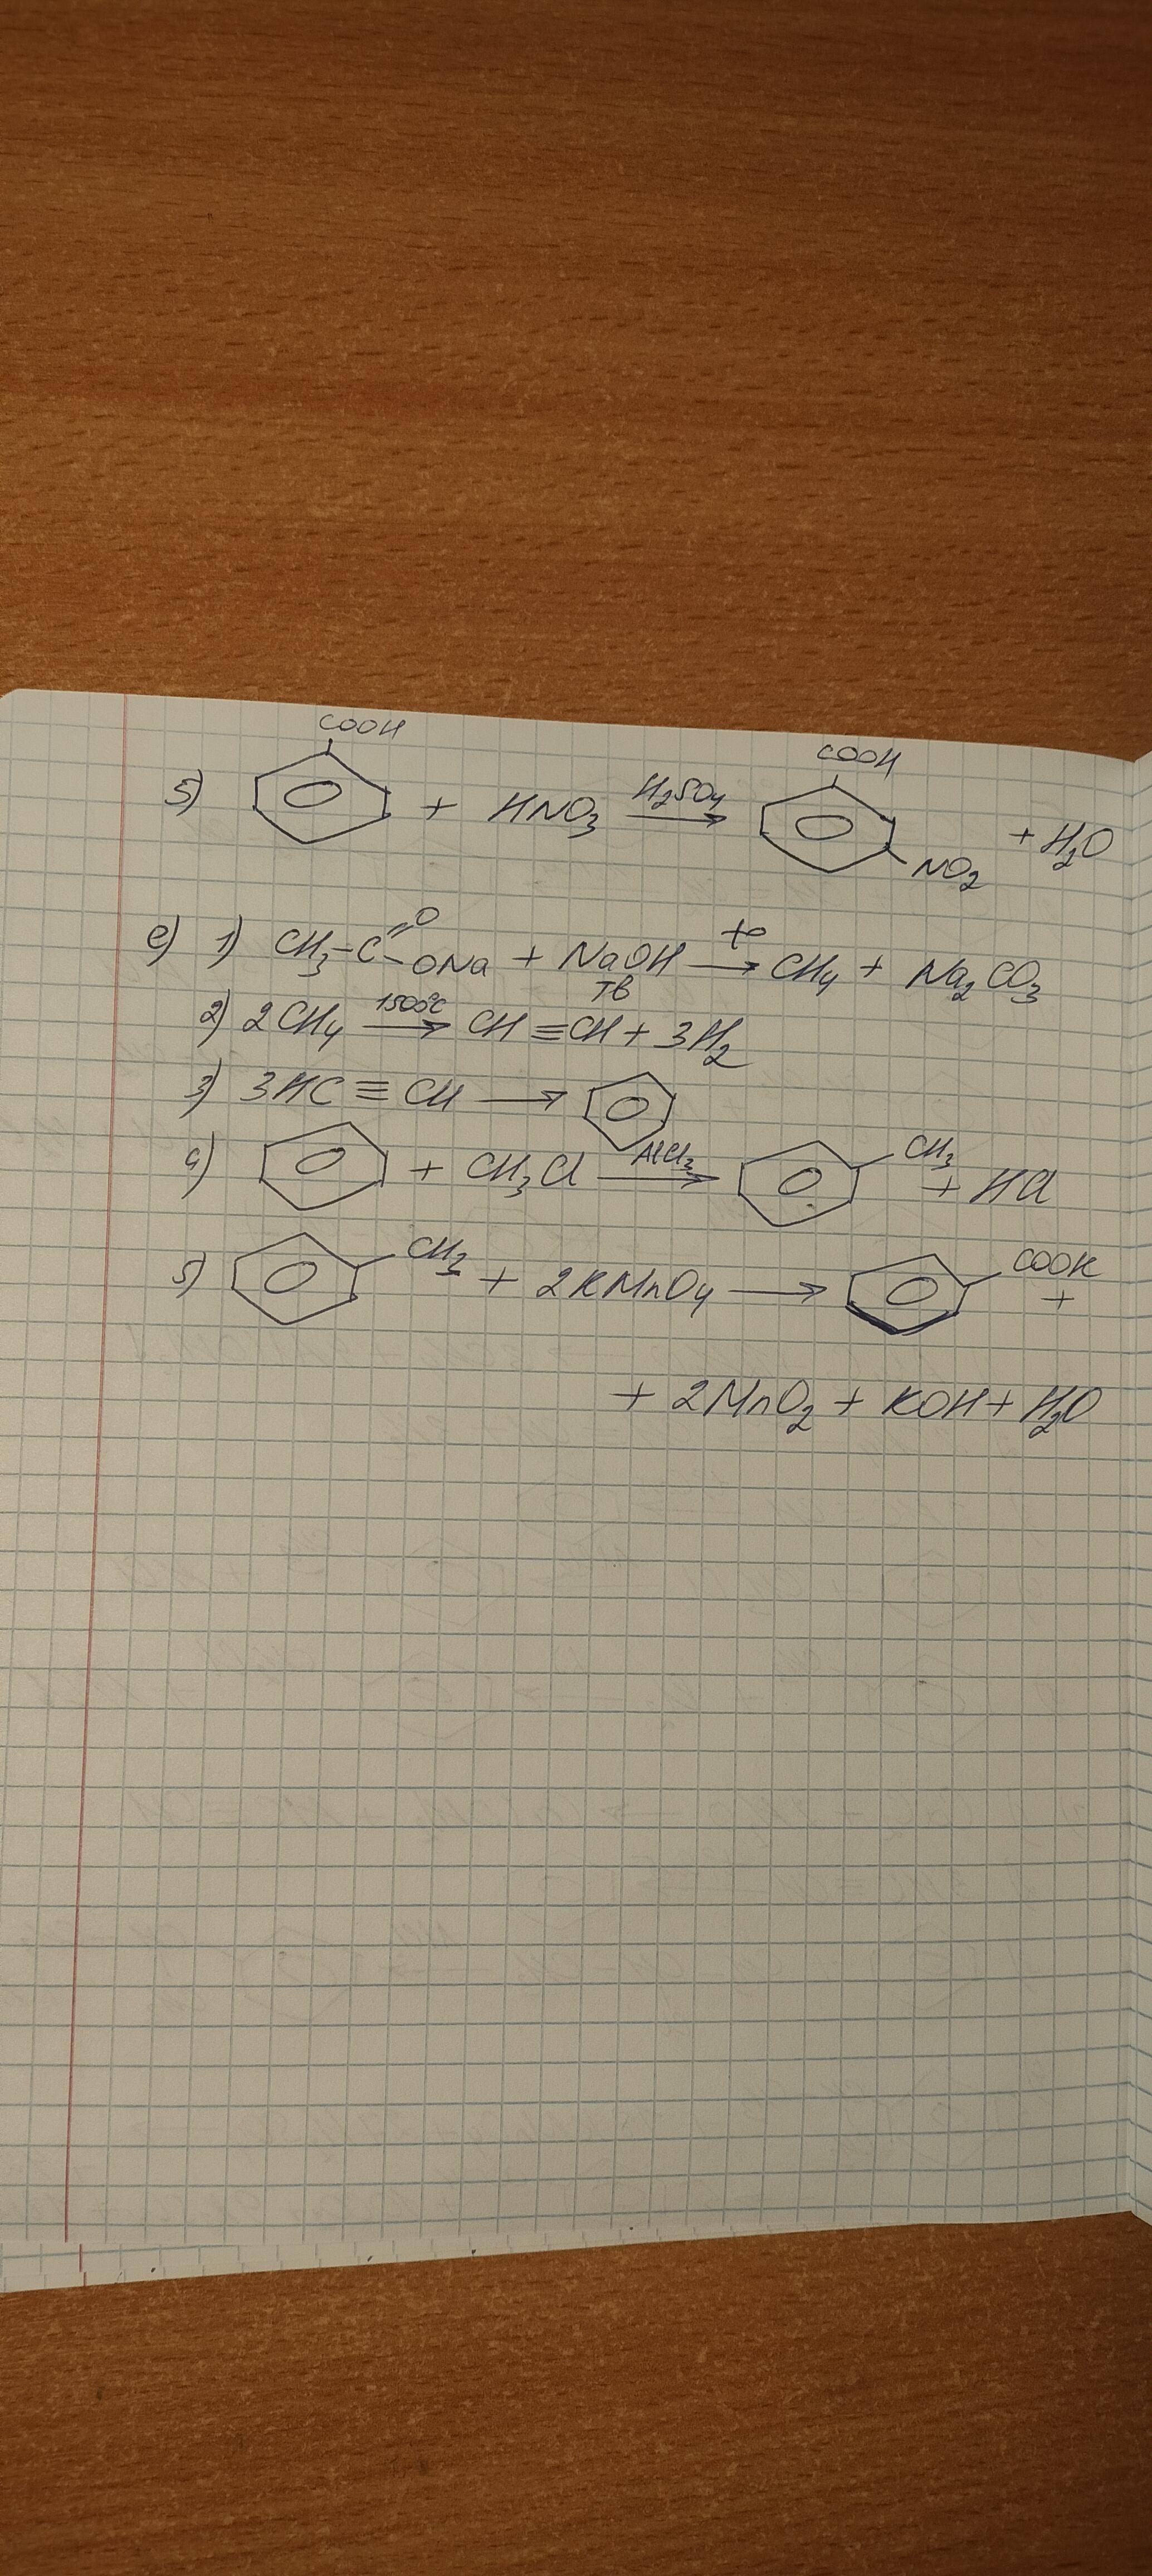 COOH COOH
5) + HNO3 H2SO4 → + H2O
NO2
е) 1) CH3-C=O-ONa + NaOH тв t° → CH4 + Na2CO3
2) 2CH4 1500°C → CH≡CH + 3H2
3) 3HC≡CH →
4) + CH3Cl AlCl3 → CH3 + HCl
5) CH3 + 2KMnO4 → COOK +
+ 2MnO2 + KOH + H2O